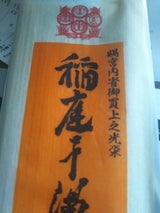 賜宮内省御買上之光栄
稲庭干饂